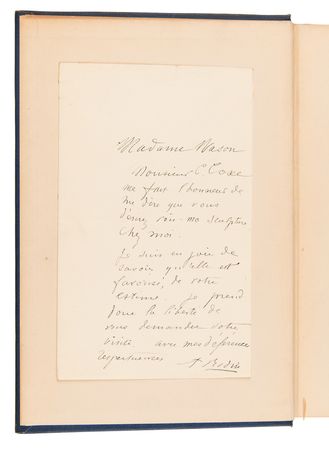 Madame Mason
Monsieur C. Coxe
me fait l'honneur de
me dire que vous
désirez voir ma sculpture
chez moi.
Je suis en joie de
savoir qu'elle est
favorisée de votre
estime. Je prend
donc la liberté de
vous demander votre
visite avec mes déférence
respectueuses A Rodin